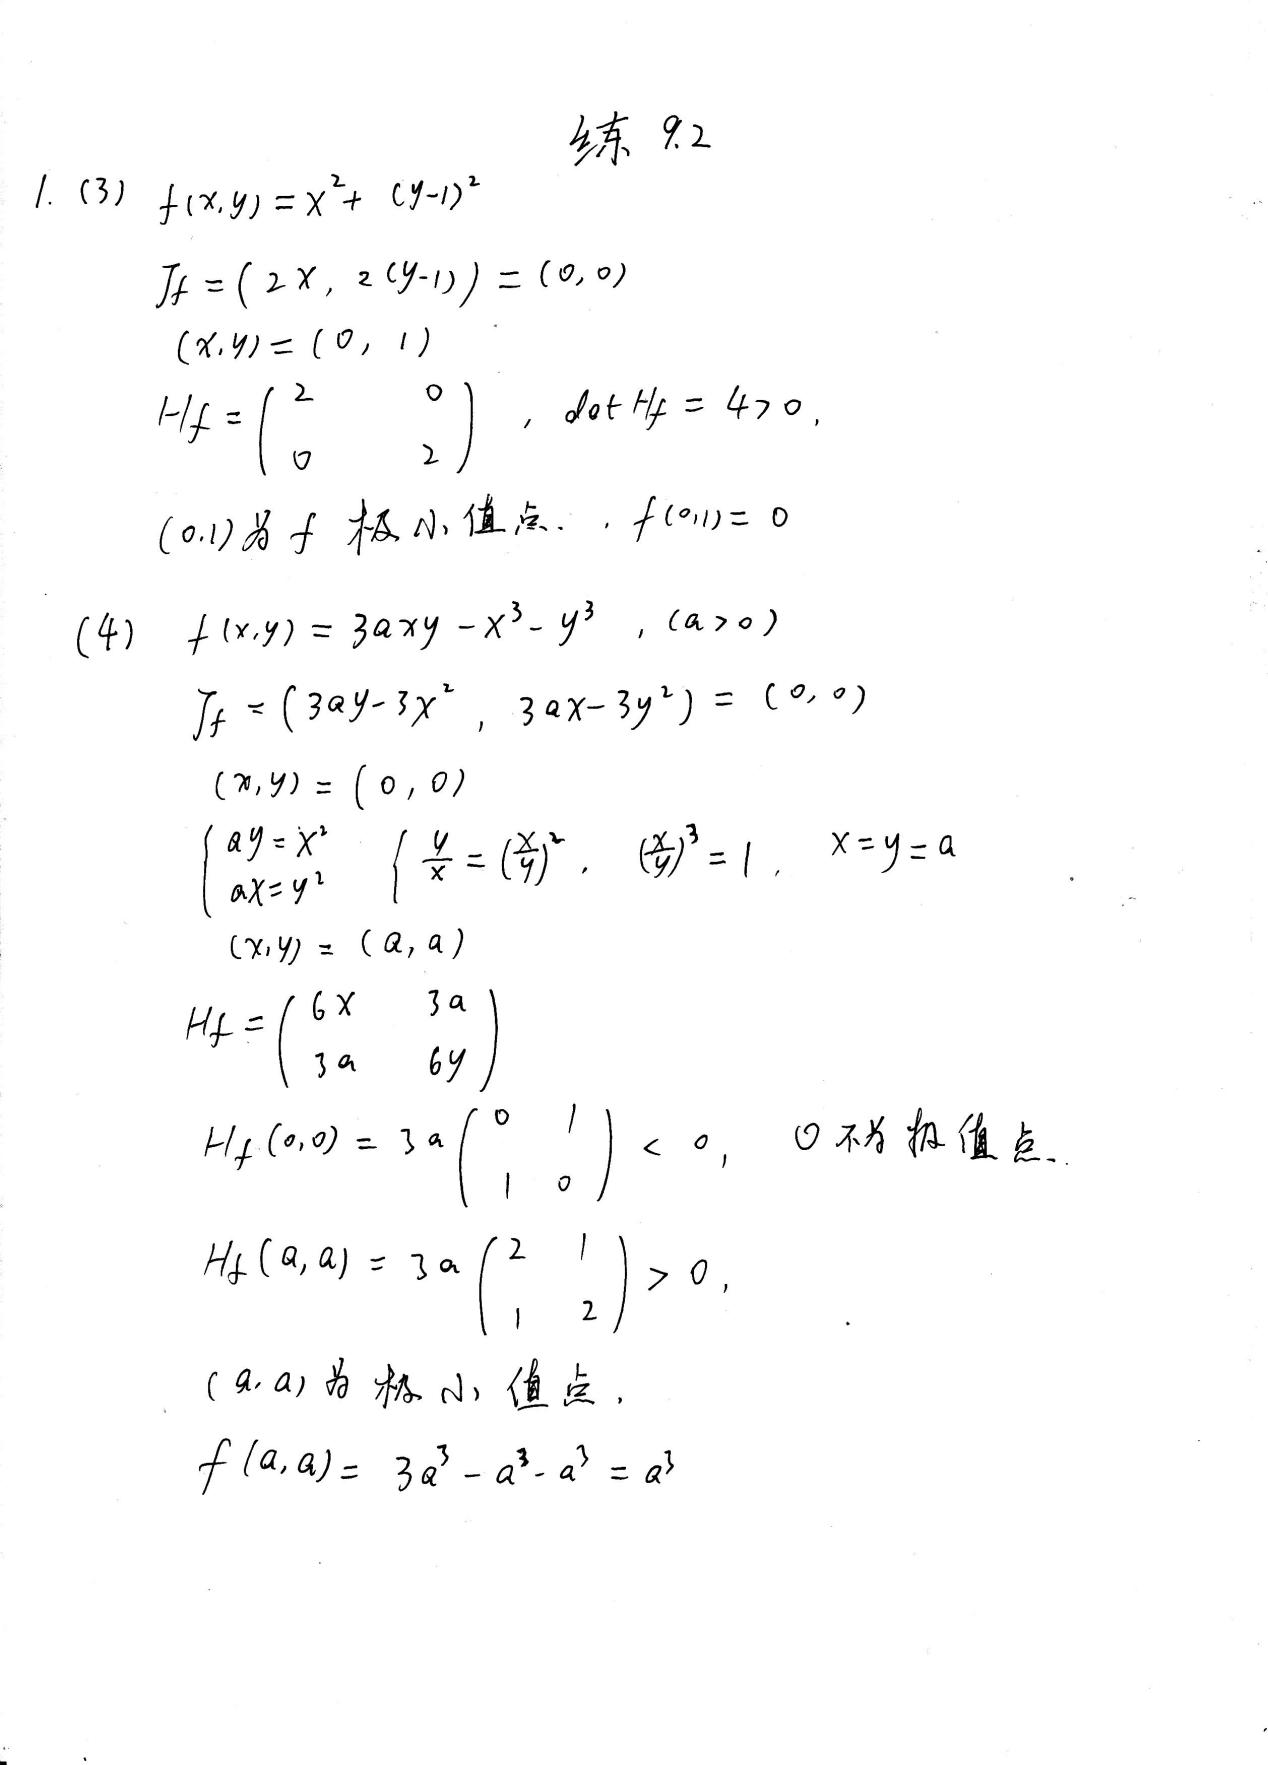 练 9.2
1. (3) f(x,y) = x² + (y-1)²
Jf = (2x, 2(y-1)) = (0,0)
(x,y) = (0, 1)
Hf = ( 2 0
0 2 ) , det Hf = 4>0,
(0.1)为 f 极小值点. . f(0,1) = 0
(4) f(x,y) = 3axy - x³ - y³ , (a>0)
Jf = (3ay-3x² , 3ax-3y²) = (0,0)
(x,y) = (0,0)
{ ay = x² { y/x = (x/y)² , (x/y)³ = 1 , x=y=a
ax = y²
(x,y) = (a,a)
Hf = ( 6x 3a
3a 6y )
Hf(0,0) = 3a ( 0 1
1 0 ) < 0, 0不为极值点.
Hf(a,a) = 3a ( 2 1
1 2 ) > 0,
(a.a)为极小值点.
f(a,a) = 3a³ - a³ - a³ = a³